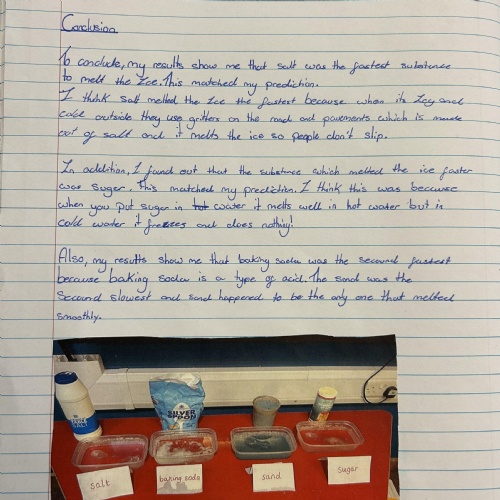 Conclusion
To conclude, my results show me that salt was the fastest substance
to melt the Ice. This matched my prediction.
I think salt melted the Ice the fastest because when its Icy and
cold outside they use gritters on the road and pavements which is made
out of salt and it melts the ice so people don't slip.
In addition, I found out that the substance which melted the ice faster
was sugar. This matched my prediction. I think this was because
when you put sugar in hot water it melts well in hot water but in
cold water it freezes and does nothing!
Also, my results show me that baking soda was the second fastest
because baking soda is a type of acid. The sand was the
second slowest and sand happened to be the only one that melted
smoothly.
SILVER SPOON
SALT
salt
baking soda
sand
sugar